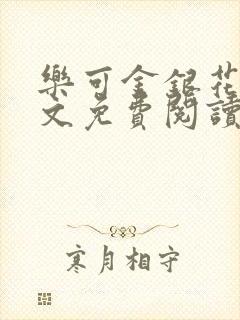 樂可金銀花
文免費閱讀
寒月相守